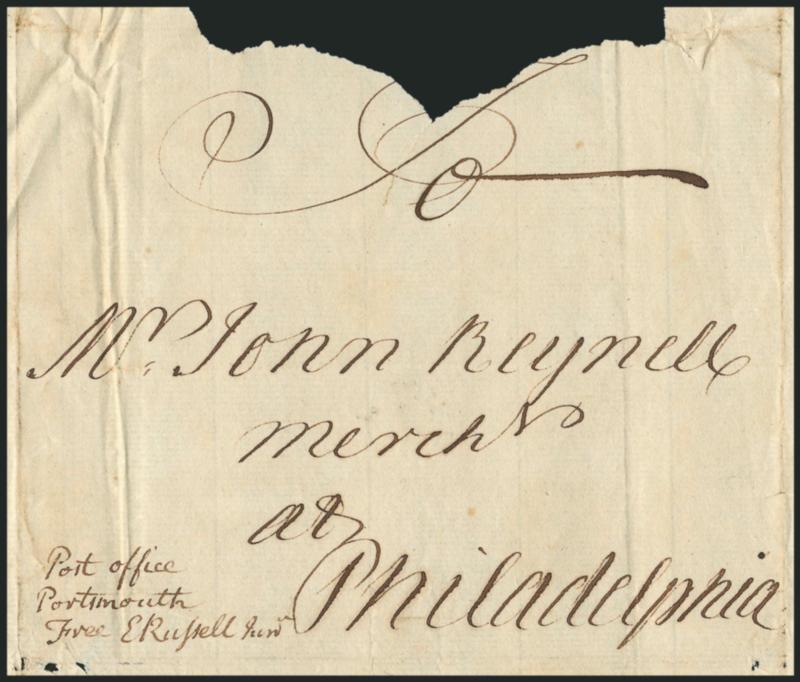 To
Mr. John Reynell
mercht
at
Philadelphia
Post office
Portsmouth
Free E Russell Junr